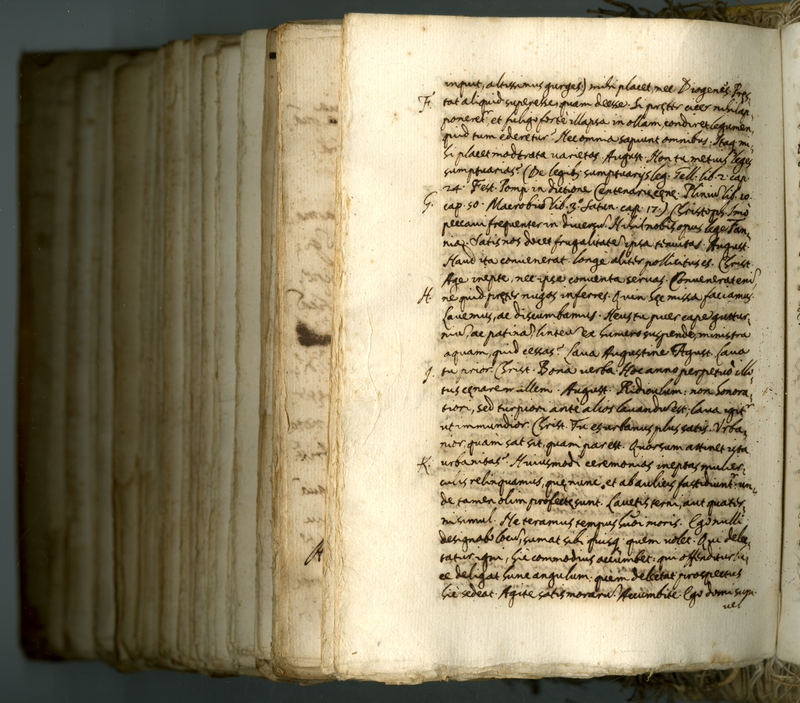 inquit, altissimus gurges) mihi placet, nec Diogenes. Pres-
F. tat aliquid superesse, quam deesse. Si praeter cicer nihil ap-
poneret, et fuligo forte illapsa in ollam, condiret legumen,
quid tum ederetur? Nec omnia sapiunt omnibus. Itaq mi-
hi placet moderata varietas. August. Non tu metuis leges
sumptuarias? (De legib. sumptuarys leg. Gell. lib. 2. cap.
24. Fest. Pomp. in dictione Centenariae cenae. Plinius lib. 10.
G. cap. 50. Macrobius lib. 3.º Satur. cap. 17.) Christoph. Imò
peccavi frequenter in diversum. Nihil nobis opus lege Fan-
nia. Satis nos docet frugalitate ipsa tenuitas. August.
Haud ita convenerat: longe aliter pollicitus es. Christ.
Age inepte, nec ipse conventa servas. Convenerat enim
H. ne quid praeter nugas inferres. Quin haec missa faciamus.
Lavemus, ac discumbamus. Heus tu puer cape guttur-
nium, ac patinam, linteum ex humero suspende, ministra
aquam, quid cessas? Lava Augustine. August. Lava
J. tu prior. Christ. Bona verba. Hoc anno perpetuò illo-
tus cenarem mallem. August. Ridiculum: non honora-
tiori, sed turpiori ante alios lavandum est; lava igitr
ut immundior. Christ. Tu es urbanus plus satis. Urba-
nior, quam sat sit, quam par est. Quorsum attinet ista
K. urbanitas? Huiusmodi ceremonias ineptas mulier-
culis relinquamus, quas nunc, et ab aulicis fastidiunt: un-
de tamen olim profectae sunt. Lavetis terni, aut quater-
ni simul. Ne teramus tempus huiusmodi moris. Ego nulli
designabo locum, sumat sibi quisq quem volet. Qui delec-
tatur igni, hic commodius accumbet: qui offenditur, lu-
ce deligat hunc angulum: quem delectat prospectus
hic sedeat. Agite satis morarum. Accumbite. Ego domi sum.
vel